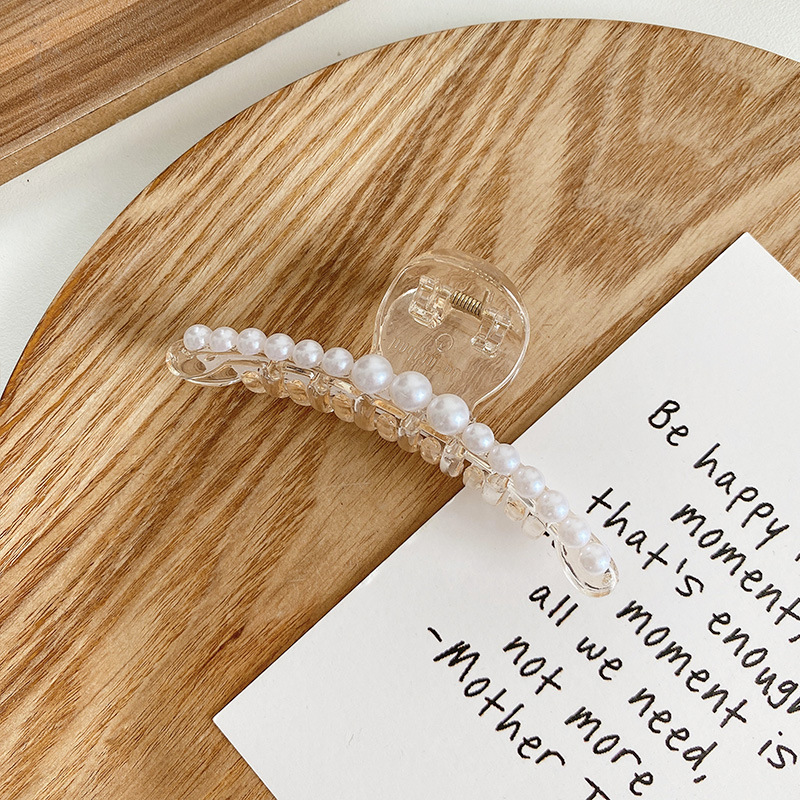 Be happy
moment,
that's enough
moment is
all we need,
not more
-Mother T